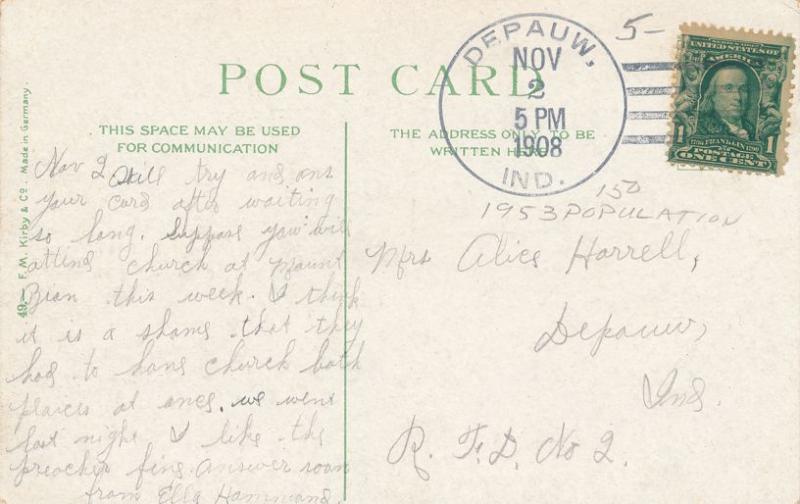 POST CARD
THIS SPACE MAY BE USED
FOR COMMUNICATION
THE ADDRESS ONLY TO BE
WRITTEN HERE
49.— F.M. Kirby & Co. Made in Germany.
DEPAUW,
NOV
2
5 PM
1908
IND.
5-
UNITED STATES OF
AMERICA
1 FRANKLIN 1
POSTAGE
ONE CENT
150
1953 POPULATION
Nov 2 Will try and ans
your card after waiting
so long. Suppose you will
attend church at Mount
Zion this week. I think
it is a shame that they
had to have church both
places at once. we went
last night I like the
preacher fine. answer soon
from Ella Hammond.
Mrs Alice Harrell,
Depauw,
Ind.
R. F. D. No 2.